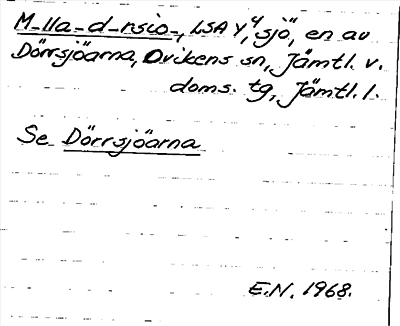 M-lla-d-rsjo-, LSA Y,4 sjö, en av
Dörrsjöarna, Ovikens sn, Jämtl. v.
doms. tg, Jämtl. l.
Se Dörrsjöarna
E.N. 1968.